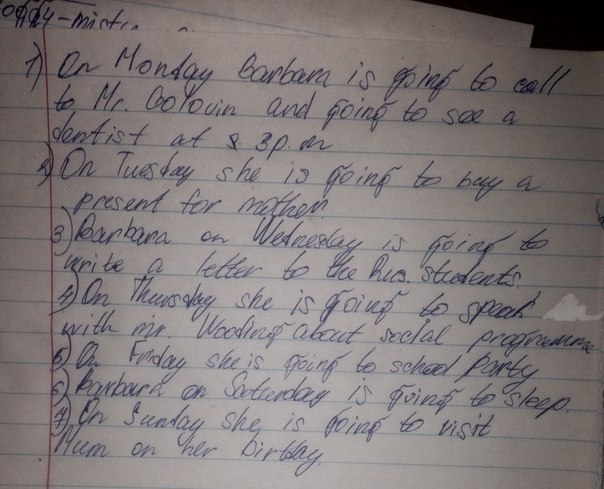 1) On Monday Barbara is going to call
to Mr. Golovin and going to see a
dentist at 8. 3p.m
2) On Tuesday she is going to buy a
present for mother
3) Barbara on Wednesday is going to
write a letter to the Rus. students.
4) On Thursday she is going to speak
with mr. Wooding about social programme
5) On Friday she is going to school party
6) Barbara on Saturday is going to sleep.
7) On Sunday she is going to visit
Mum on her birtday.